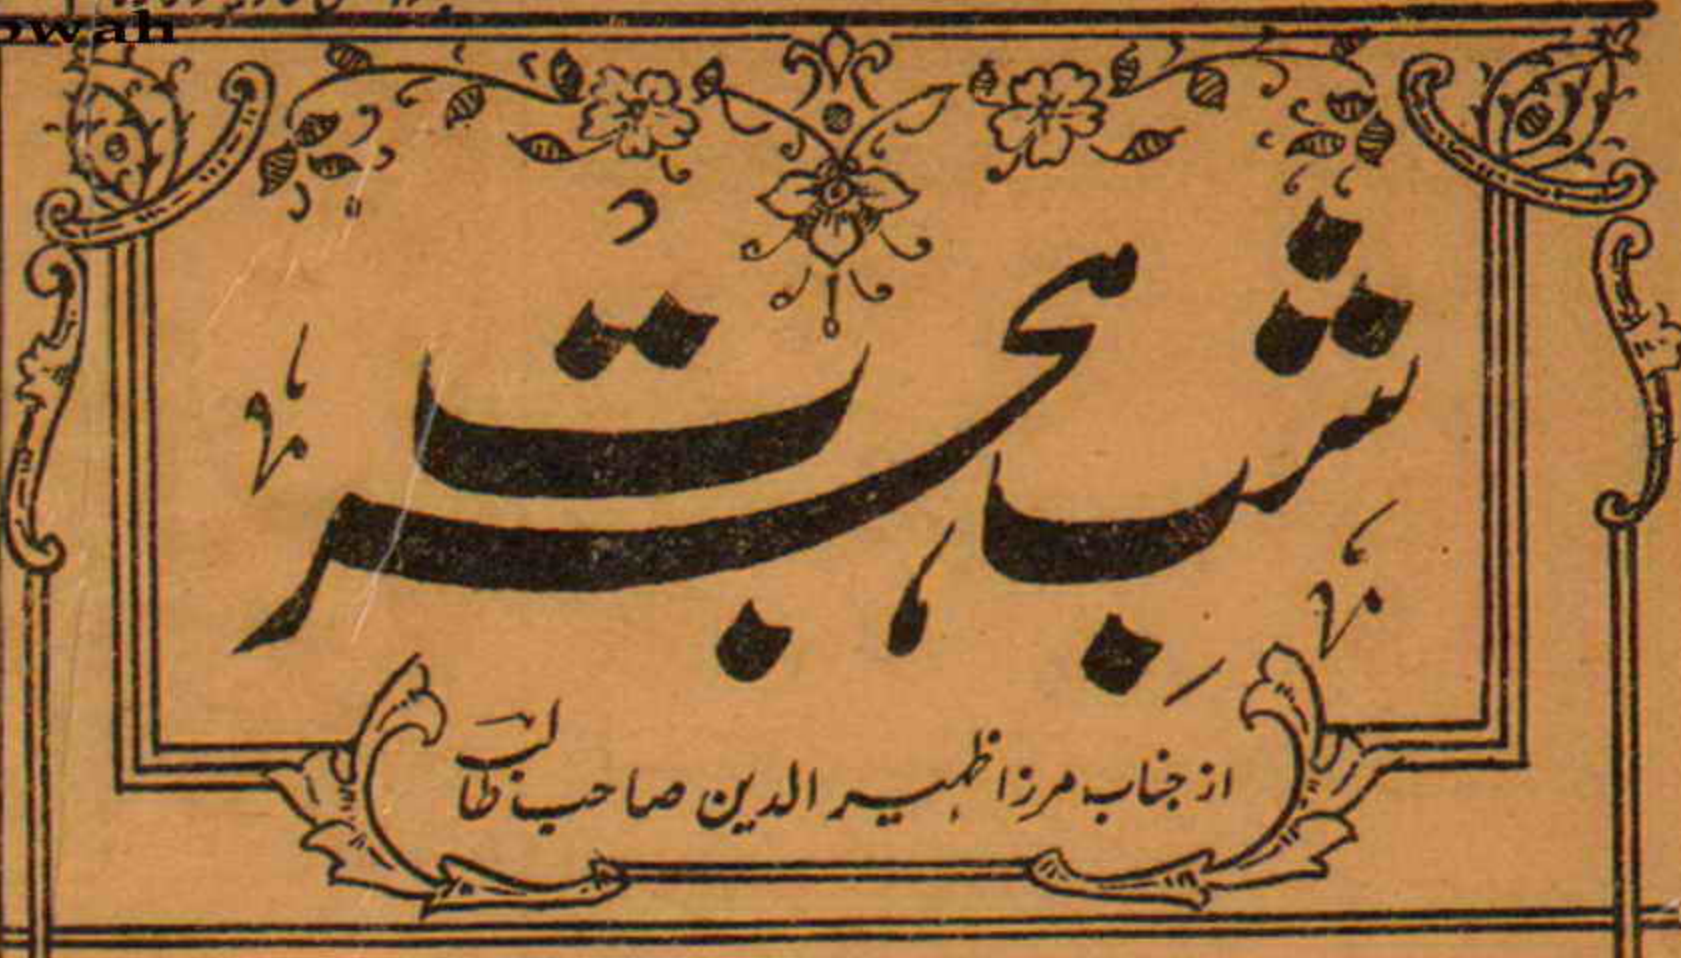 شبِ ہجرت
از جناب مرزا ظہیر الدین صاحب طالب